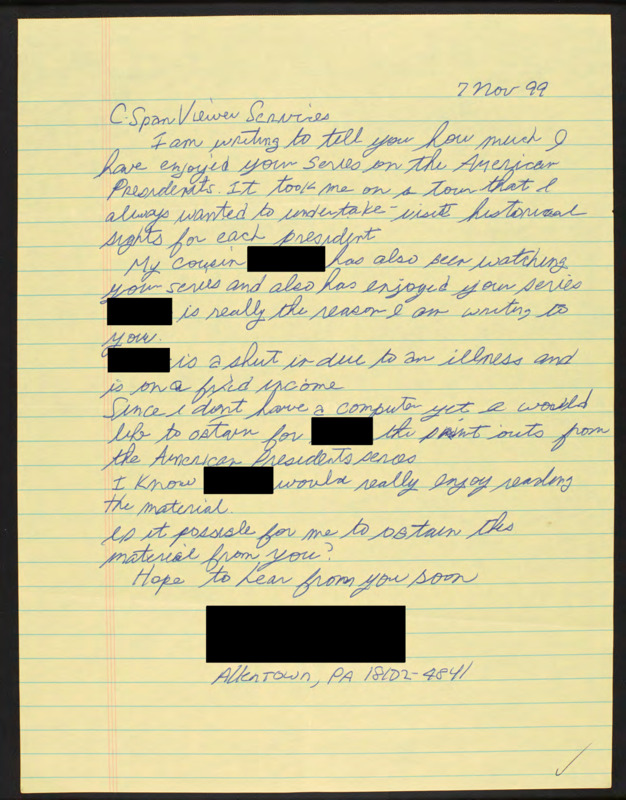 7 Nov 99
C-Span Viewer Services
I am writing to tell you how much I
have enjoyed your series on the American
Presidents. It took me on a tour that I
always wanted to undertake - visit historical
sights for each president
My cousin has also been watching
your series and also has enjoyed your series
is really the reason I am writing to
you.
is a shut in due to an illness and
is on a fixed income
Since i dont have a computer yet a would
like to obtain for the print outs from
the American Presidents series
I know would really enjoy reading
the material.
Is it possible for me to obtain this
material from you?
Hope to hear from you soon
Allentown, PA 18102-4841